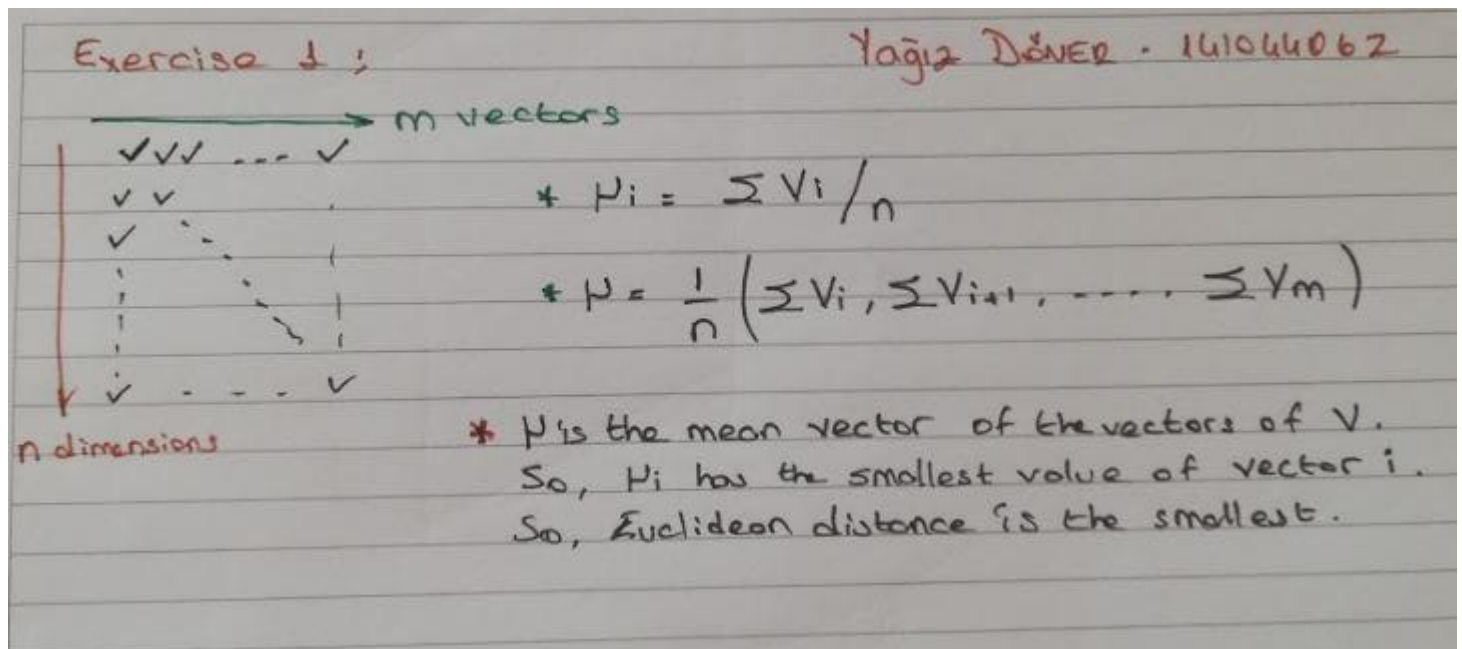 Exercise 1 :
Yağız DÖNER - 141044062
m vectors
✓✓✓ --- ✓
✓ ✓
✓
✓ - - - ✓
n dimensions
* μi = Σ Vi / n
* μ = 1/n (Σ Vi, Σ Vi+1, ---- Σ Vm)
* μ is the mean vector of the vectors of V.
So, μi has the smallest value of vector i.
So, Euclidean distance is the smallest.